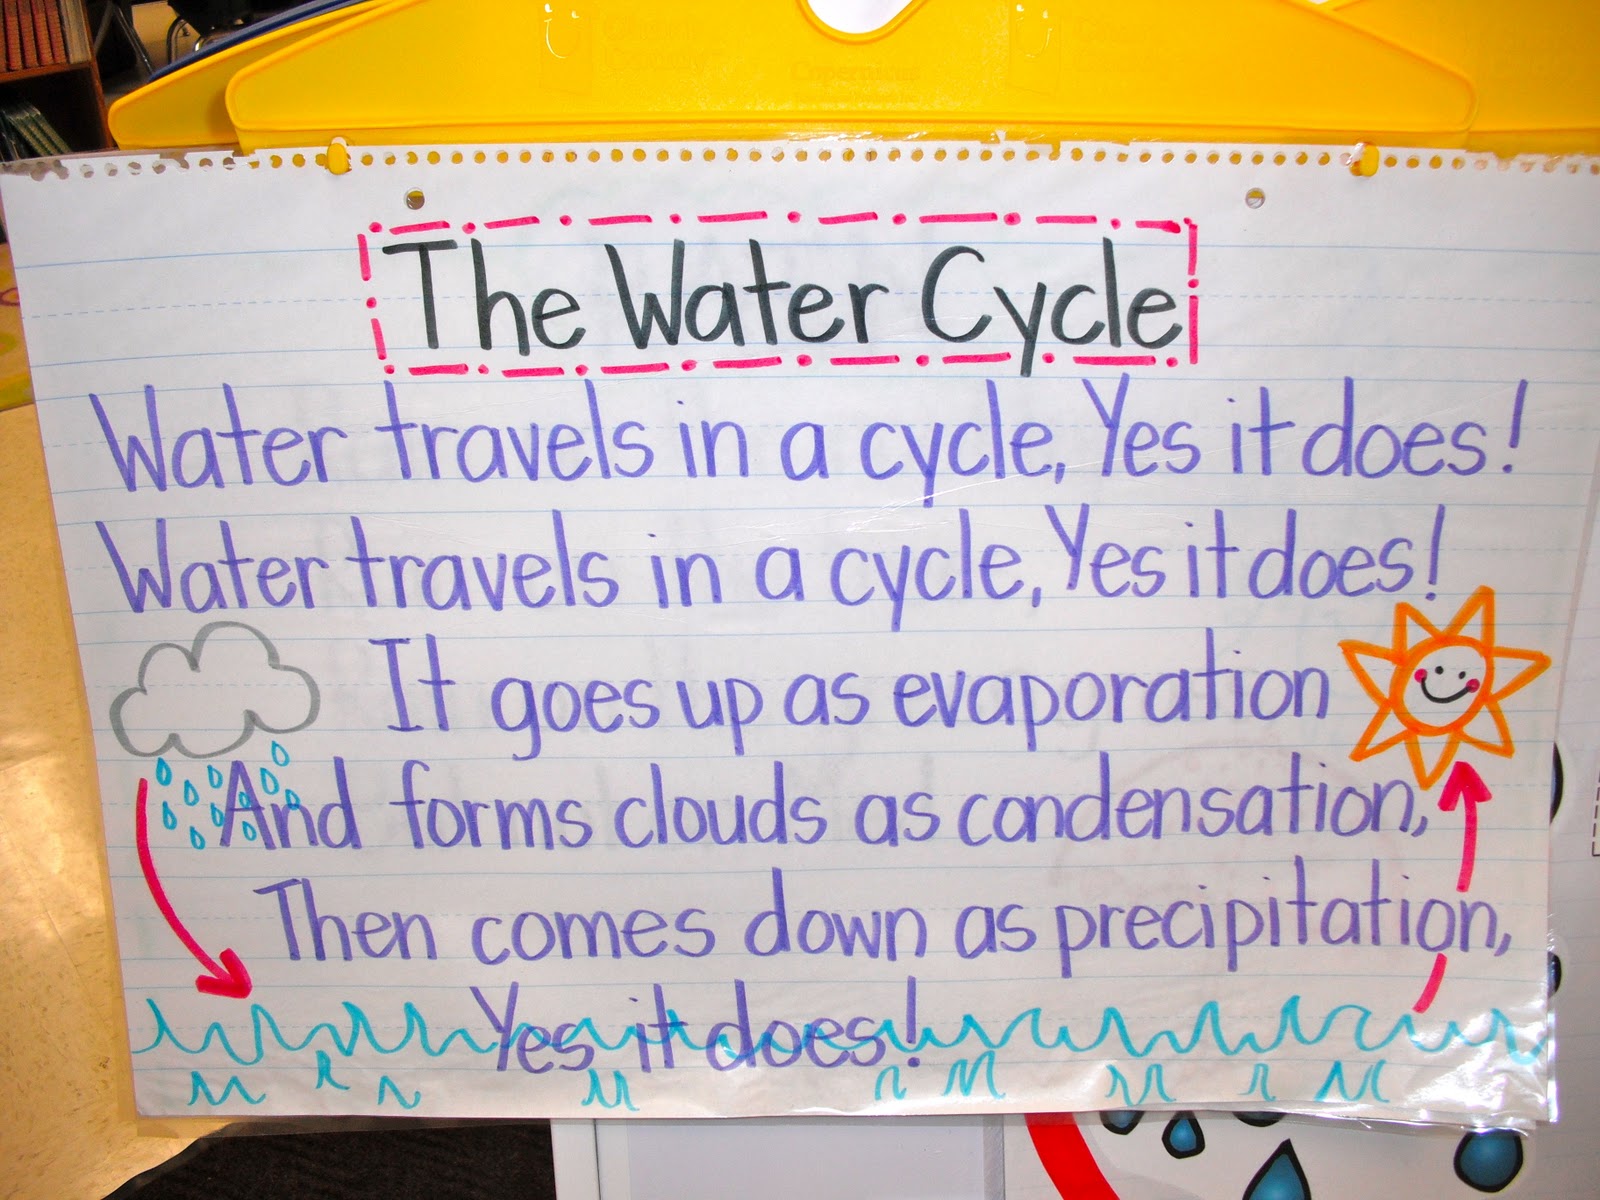 The Water Cycle
Water travels in a cycle, Yes it does!
Water travels in a cycle, Yes it does!
It goes up as evaporation
And forms clouds as condensation,
Then comes down as precipitation,
Yes it does!